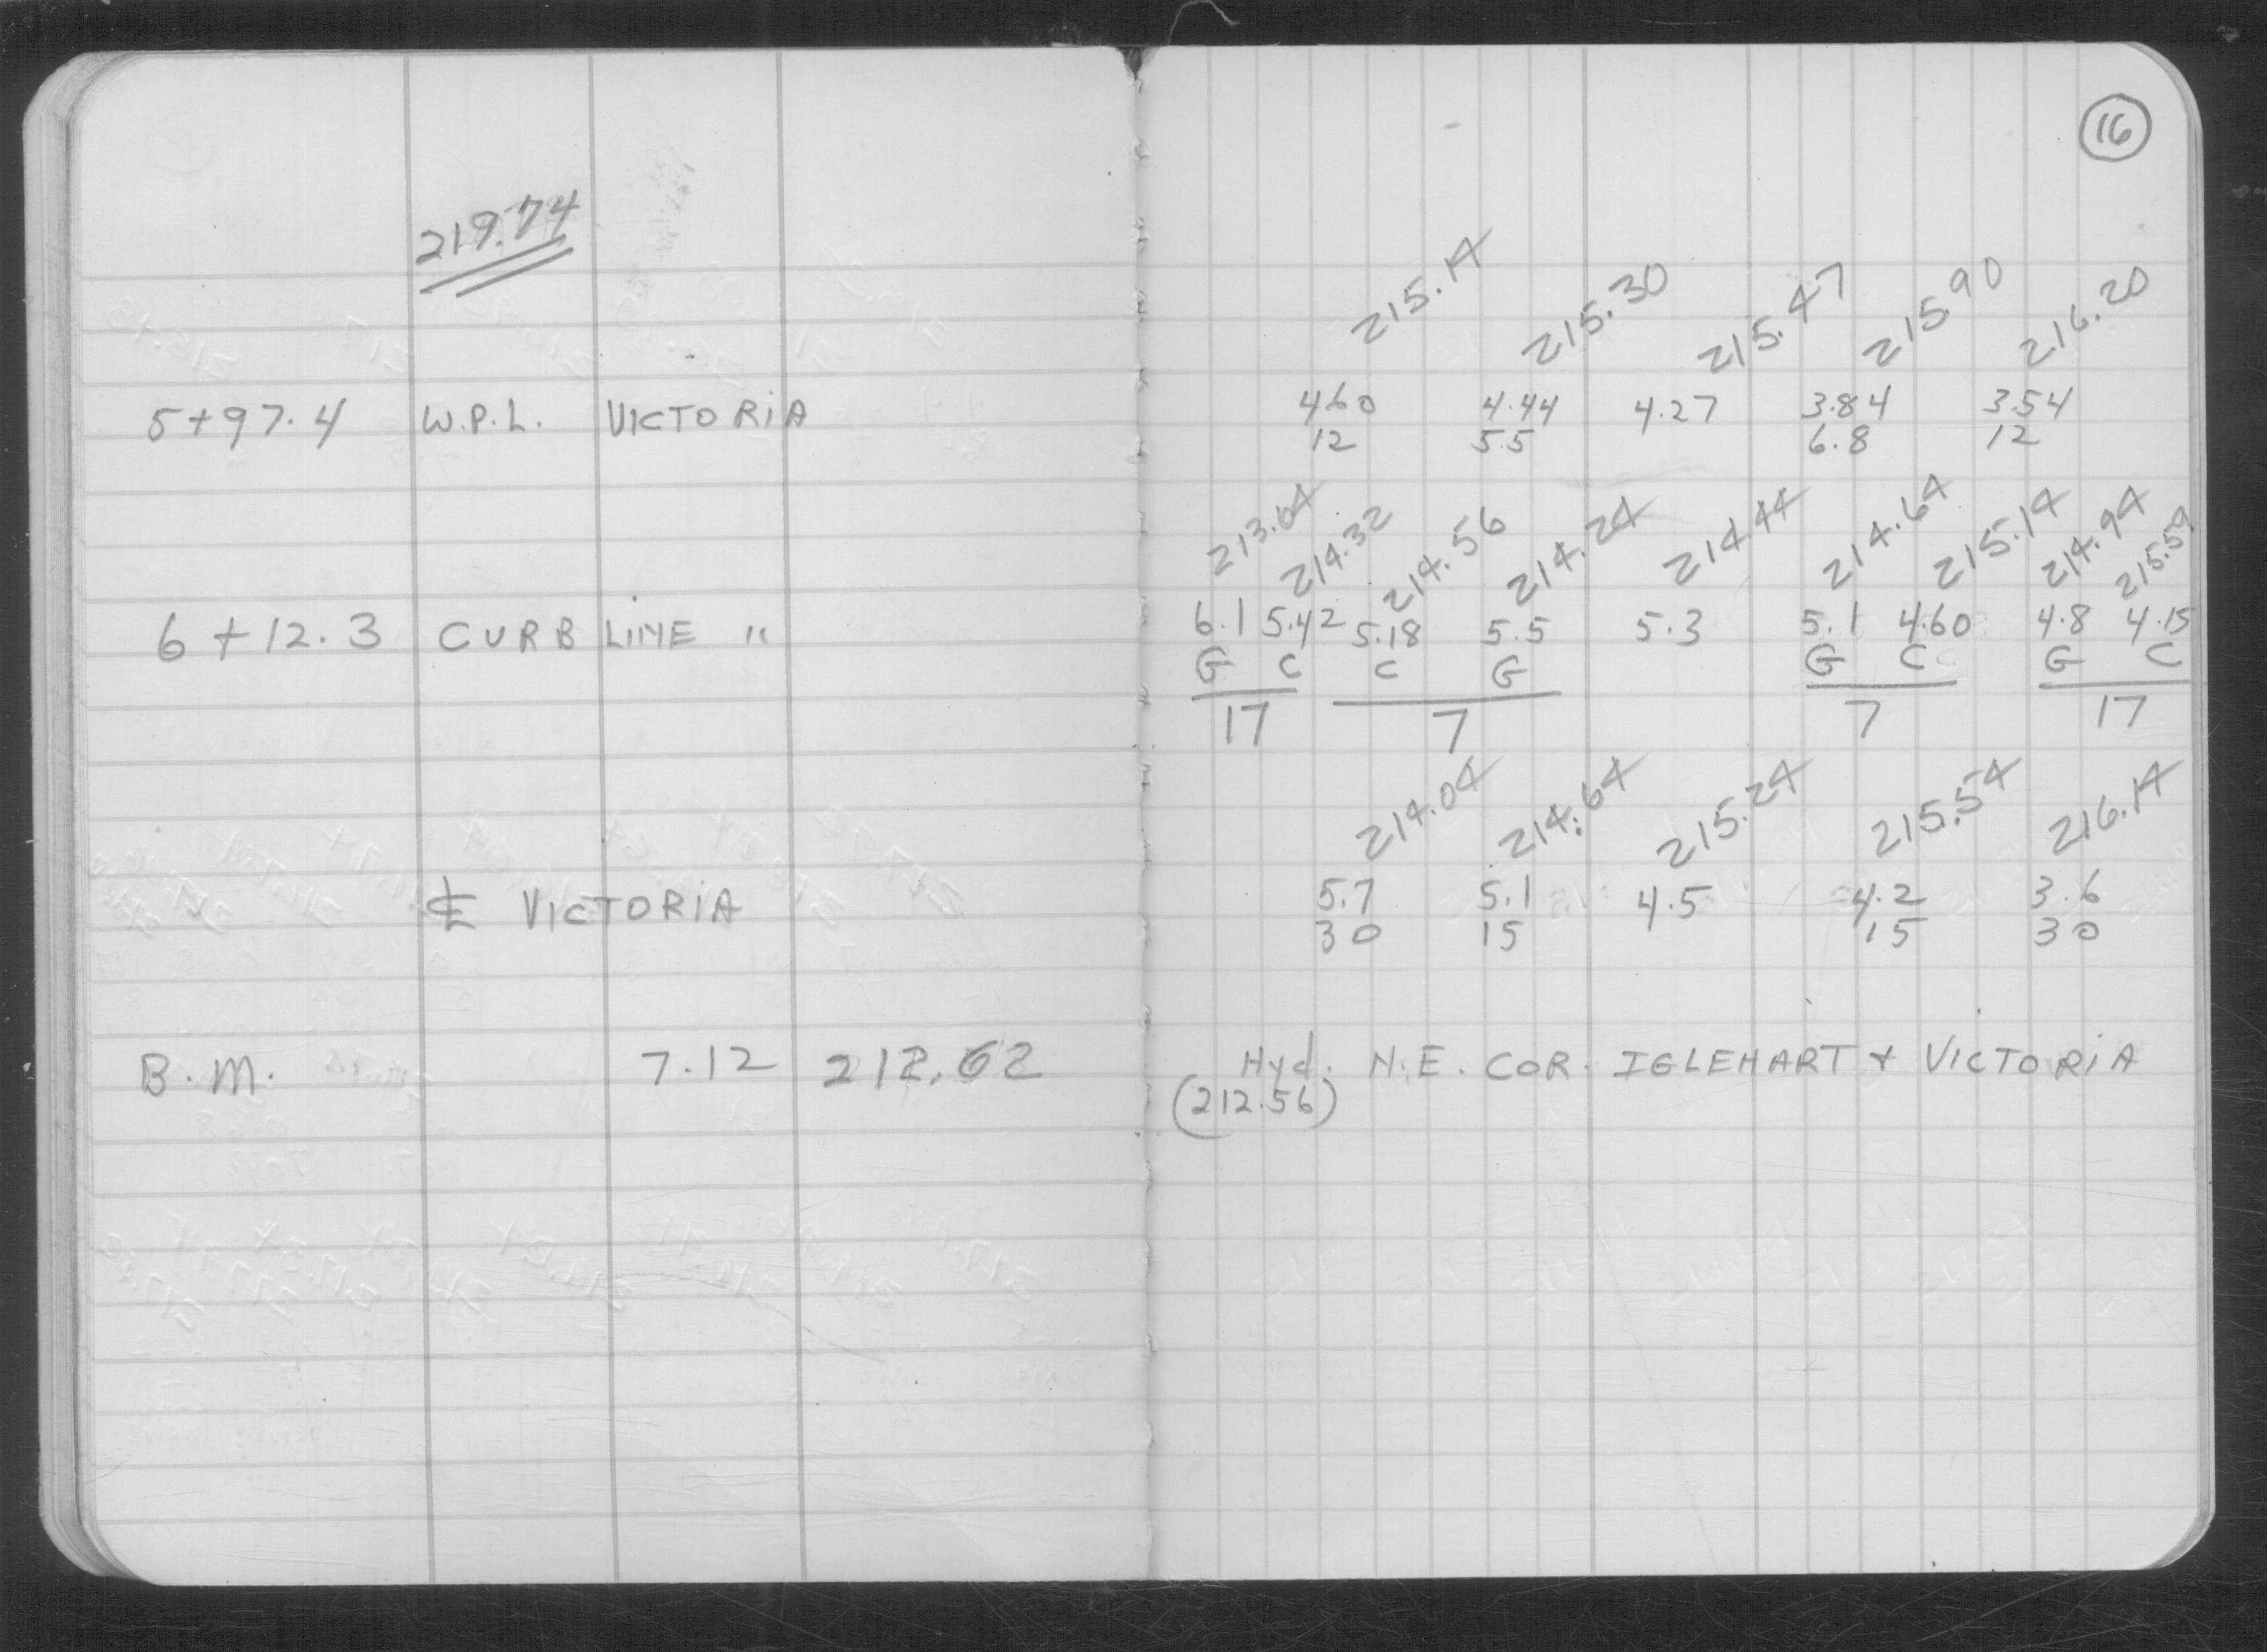 16
219.74
215.14 215.30 215.47 215.90 216.20
5+97.4 W.P.L. VICTORIA 4.60 4.44 4.27 3.84 3.54
12 5.5 6.8 12
213.64 214.32 214.56 214.24 214.44 214.64 215.14 214.94 215.59
6+12.3 CURB LINE " 6.1 5.42 5.18 5.5 5.3 5.1 4.60 4.8 4.15
G C C G G C G C
17 7 7 17
214.04 214.64 215.24 215.54 216.14
℄ VICTORIA 5.7 5.1 4.5 4.2 3.6
30 15 15 30
B.M. 7.12 212.62 Hyd. N.E. COR. IGLEHART + VICTORIA
(212.56)